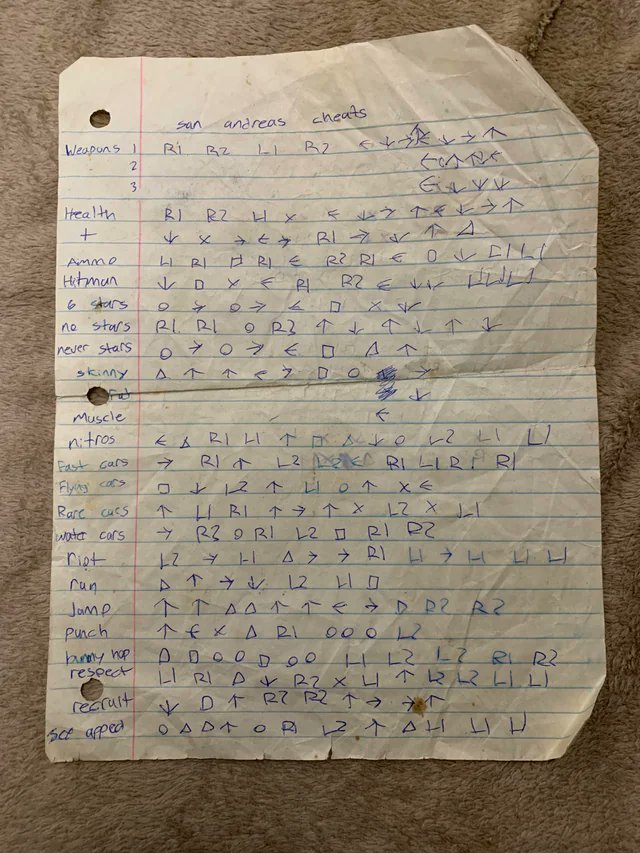 san andreas cheats
Weapons 1 R1 R2 L1 R2 ← ↓ → ↑ ← ↓ → ↑
2
3 ← ↓ ↓ ↓
Health R1 R2 L1 X ← ↓ → ↑ ← ↓ → ↑
+ ↓ X → ← → R1 → ↓ ↑ △
Ammo L1 R1 □ R1 ← R2 R1 ← □ ↓ L1 L1
Hitman ↓ □ X ← R1 R2 ← ↓ ↓ L1 L1 L1
6 stars ○ → ○ → ← □ X ↓
no stars R1 R1 ○ R2 ↑ ↓ ↑ ↓ ↑ ↓
never stars ○ → ○ → ← □ △ ↑
skinny △ ↑ ↑ ← → □ ○ →
Fat ↓
Muscle ←
nitros ← △ R1 L1 ↑ □ △ ↓ ○ L2 L1 L1
Fast cars → R1 ↑ L2 L2 ← R1 L1 R1 R1
Flying cars □ ↓ L2 ↑ L1 ○ ↑ X ←
Rare cars ↑ L1 R1 ↑ → ↑ X L2 X L1
water cars → R2 ○ R1 L2 □ R1 R2
riot L2 → L1 △ → → R1 L1 → L1 L1 L1
run △ ↑ → ↓ L2 L1 □
Jump ↑ ↑ △ △ ↑ ↑ ← → □ R2 R2
punch ↑ ← X △ R1 ○ ○ ○ L2
bunny hop △ □ ○ ○ □ ○ ○ L1 L2 L2 R1 R2
respect L1 R1 △ ↓ R2 X L1 ↑ L2 L2 L1 L1
recruit ↓ □ ↑ R2 R2 ↑ → → ↑
sex appeal ○ △ △ ↑ ○ R1 L2 ↑ △ L1 L1 L1